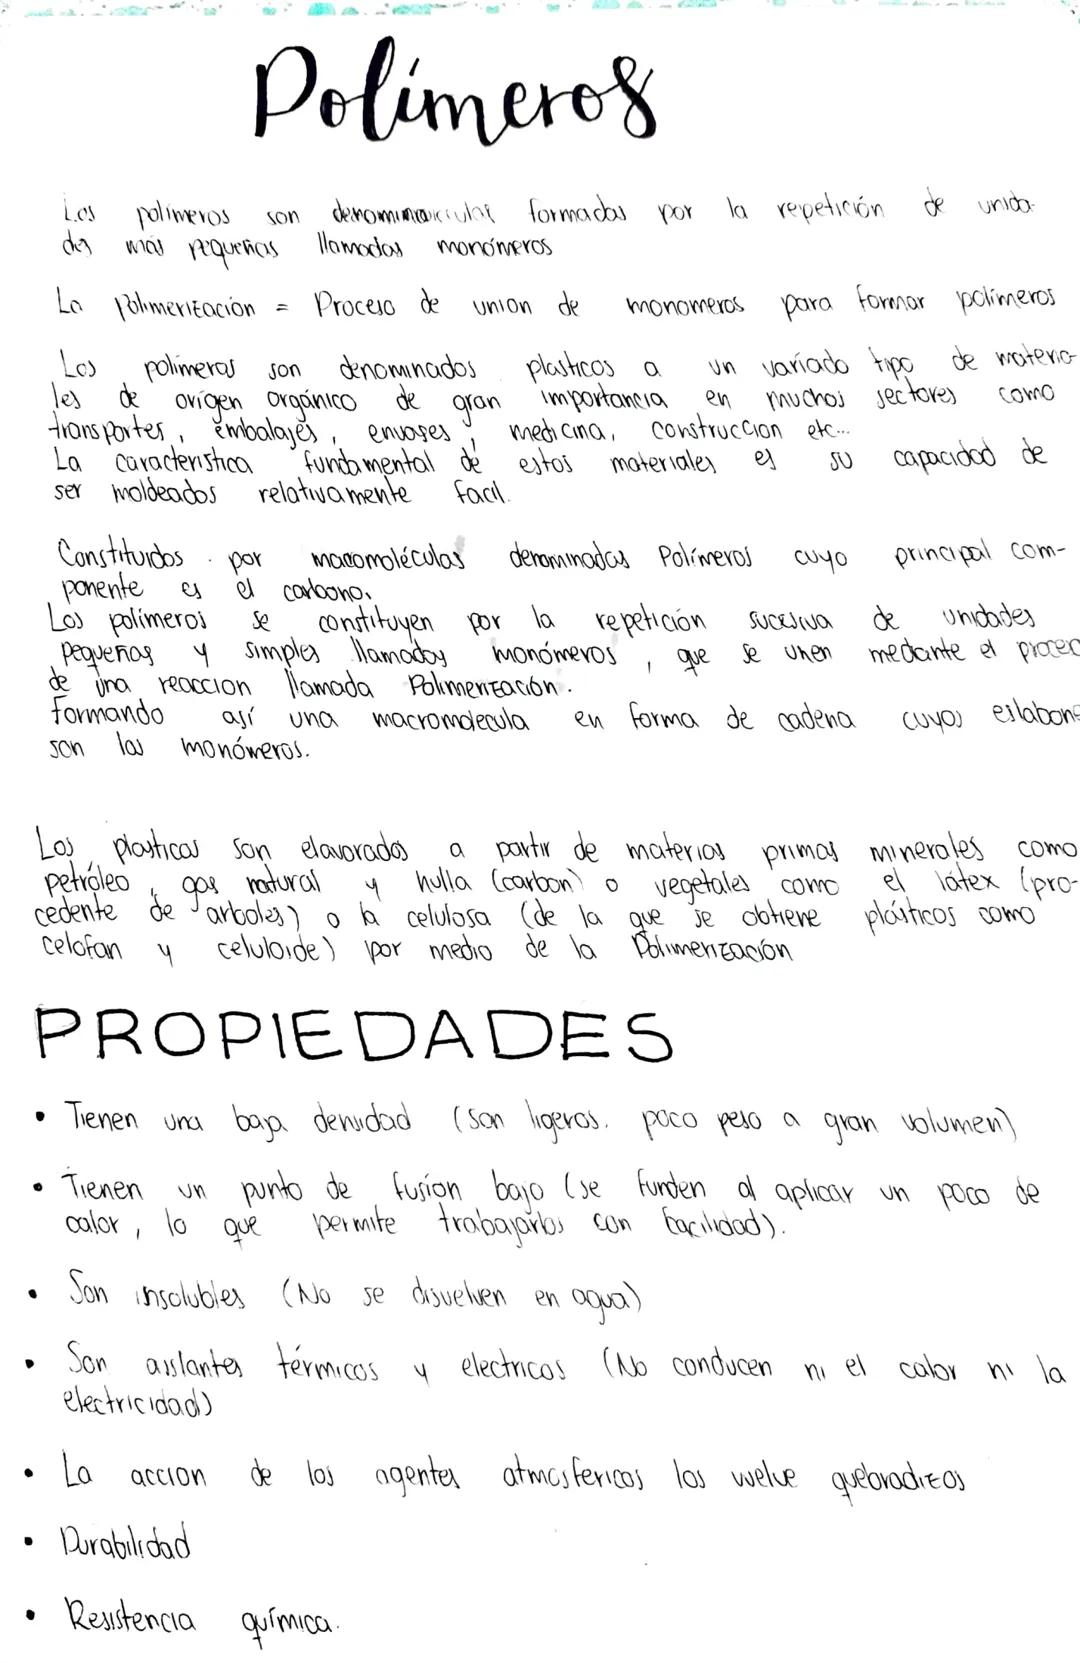 Polímeros
Los polímeros son formadas por la repetición de unida-
des más pequeñas llamadas monómeros
La Polimerización = Proceso de union de monomeros para formar polímeros
Los polímeros son denominados plasticos a un variado tipo de materia-
les de orígen orgánico de gran importancia en muchos sectores como
transportes, embalajes, envases, medicina, construccion etc...
La caracteristica fundamental de estos materiales es su capacidad de
ser moldeados relativamente facil.
Constituidos por macromoléculas denominadas Polímeros cuyo principal com-
ponente es el carbono.
Los polímeros se constituyen por la repetición sucesiva de unidades
pequeñas y simples llamados monómeros, que se unen mediante el proces
de una reaccion llamada Polimerización.
formando así una macromolecula en forma de cadena cuyos eslabone
son los monómeros.
Los plasticos son elavorados a partir de materias primas minerales como
petróleo, gas natural y hulla (carbon) o vegetales como el látex (pro-
cedente de arboles) o la celulosa (de la que se obtiene plásticos como
celofan y celuloide) por medio de la Polimerización
PROPIEDADES
• Tienen una baja densidad (son ligeros. poco peso a gran volumen)
• Tienen un punto de fusíon bajo (se funden al aplicar un poco de
calor, lo que permite trabajarlos con facilidad).
• Son insolubles (No se disuelven en agua)
• Son aislantes térmicos y electricos (No conducen ni el calor ni la
electricidad)
• La accion de los agentes atmosfericos los vuelve quebradizos
• Durabilidad
• Resistencia química.